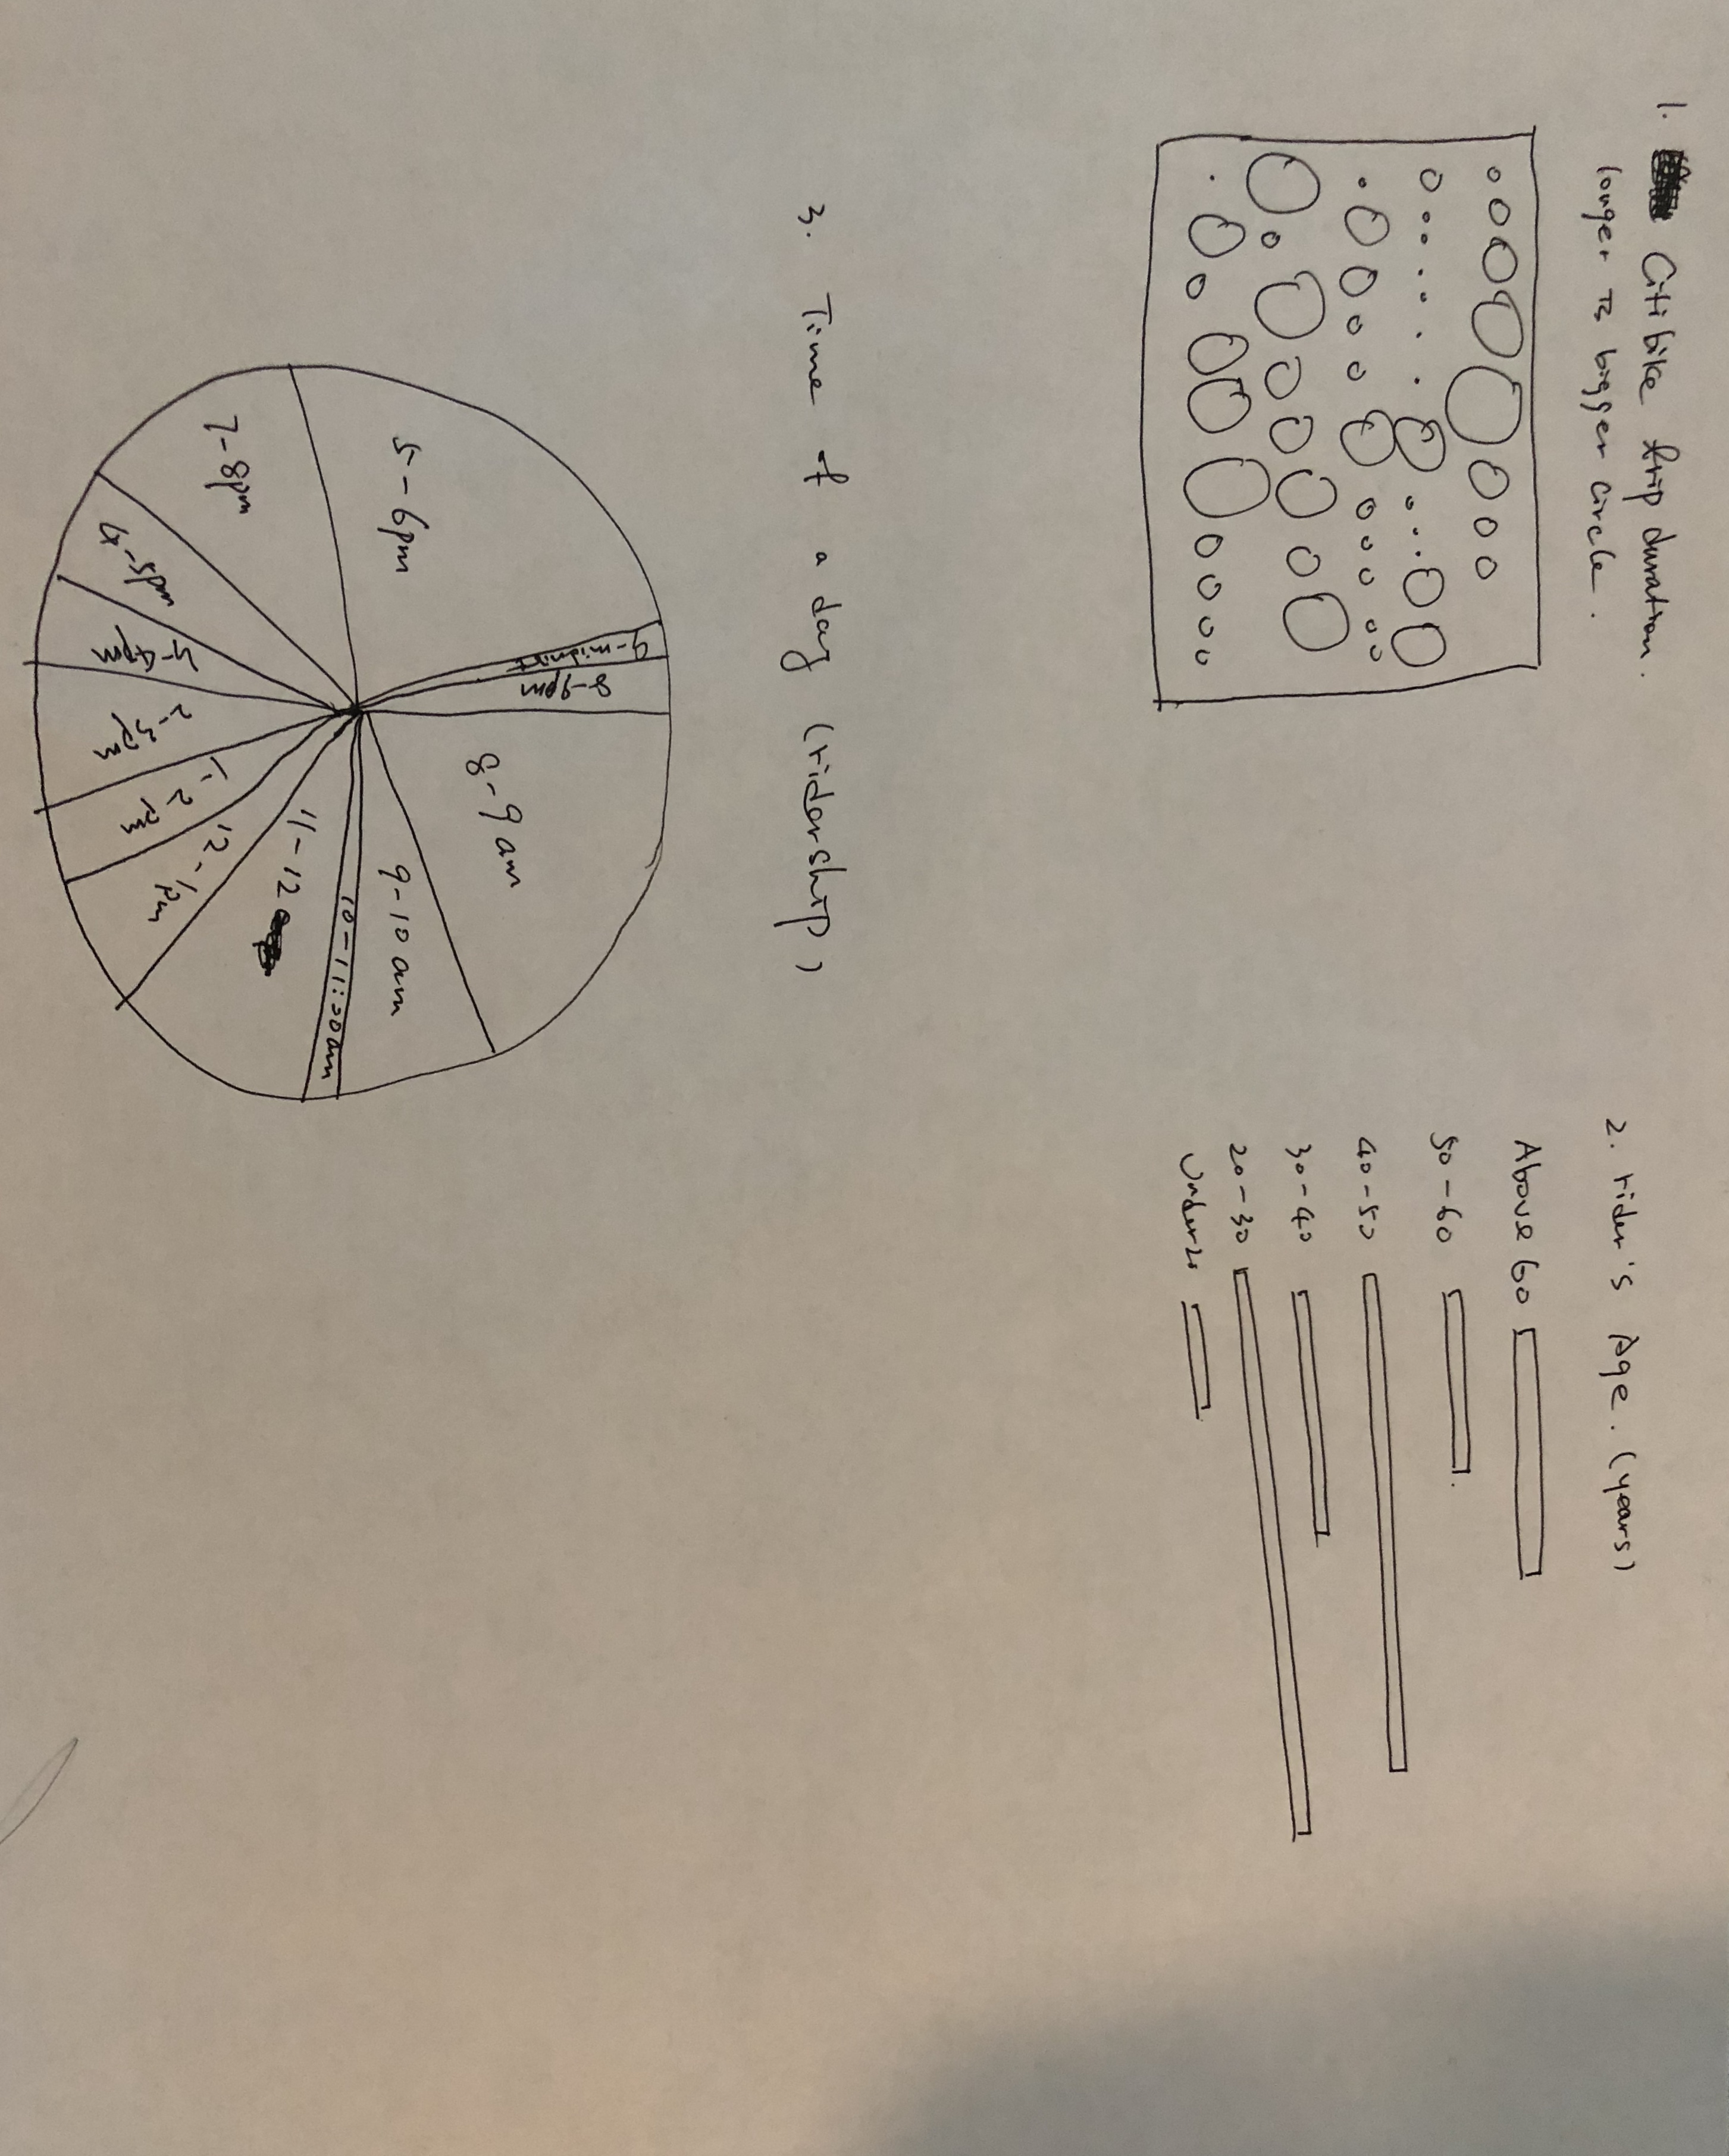 1. Citibike trip duration.
longer is bigger circle.
2. rider's Age. (years)
Above 60
50-60
40-50
30-40
20-30
Under 20
3. Time of a day (ridership)
8-9pm
8-9 am
9-10 am
10-11:00am
11-12
12-1pm
1-2 pm
2-3pm
4-5pm
7-8pm
5-6pm